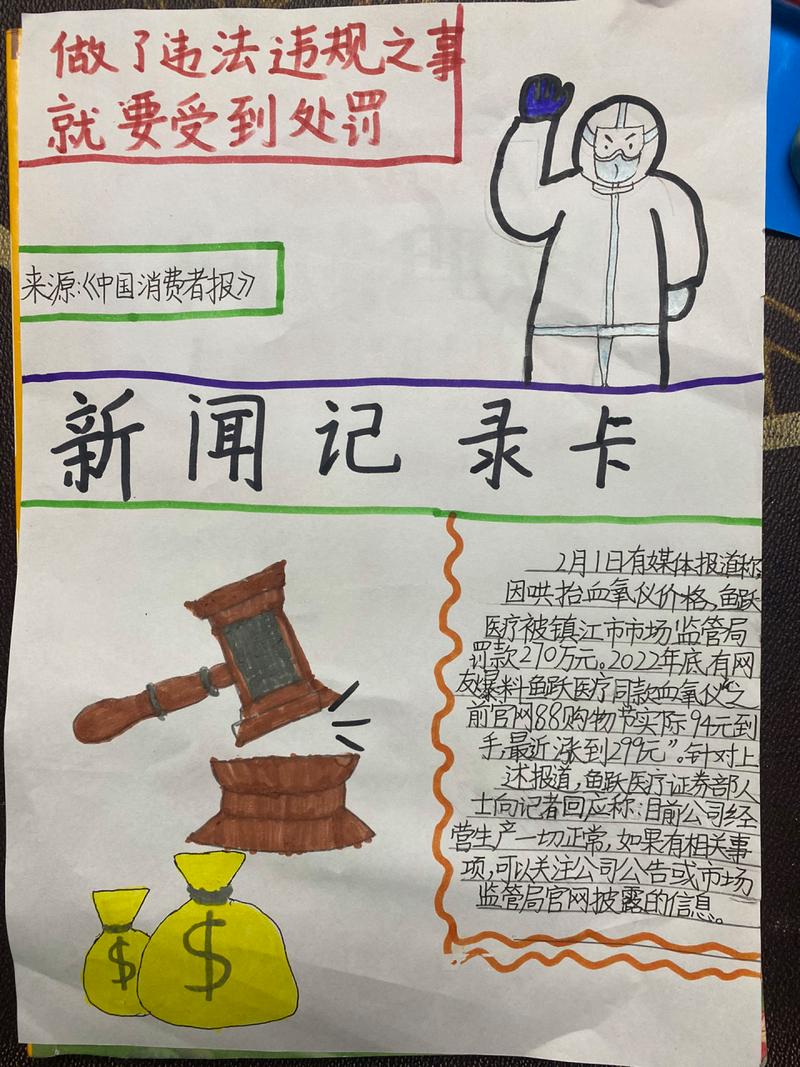 做了违法违规之事
就要受到处罚
来源:《中国消费者报》
新闻记录卡
2月1日有媒体报道称,
因哄抬血氧仪价格,鱼跃
医疗被镇江市市场监管局
罚款270万元。2022年底,有网
友爆料鱼跃医疗同款血氧仪“之
前官网88购物节实际94元到
手,最近涨到299元”。针对上
述报道,鱼跃医疗证券部人
士向记者回应称:目前公司经
营生产一切正常,如果有相关事
项,可以关注公司公告或市场
监管局官网披露的信息。
$
$